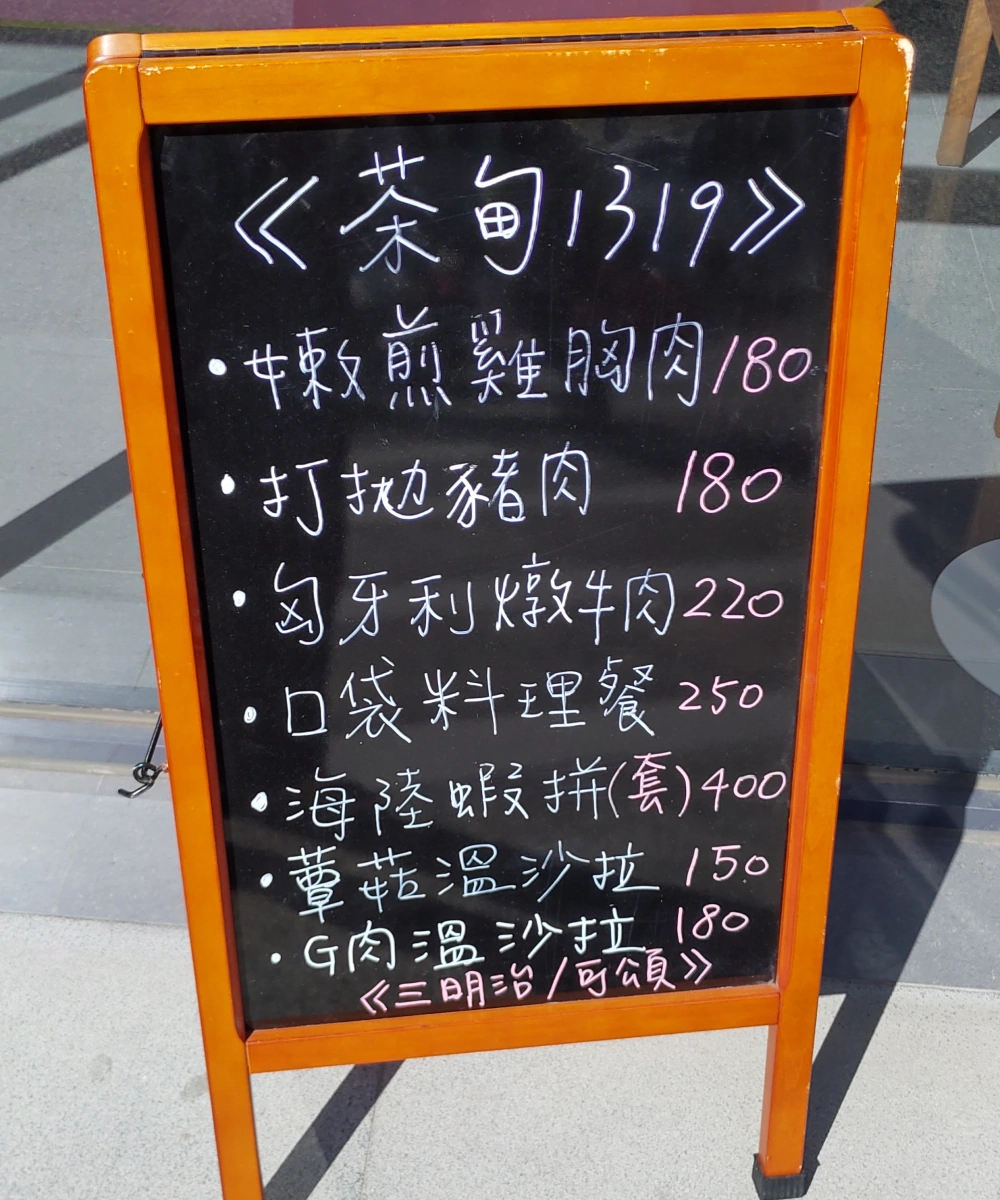 《茶甸1319》
•嫩煎雞胸肉180
•打拋豬肉 180
•匈牙利燉牛肉220
•口袋料理餐 250
•海陸蝦拼(套)400
•蕈菇溫沙拉 150
•G肉溫沙拉 180
《三明治/可頌》